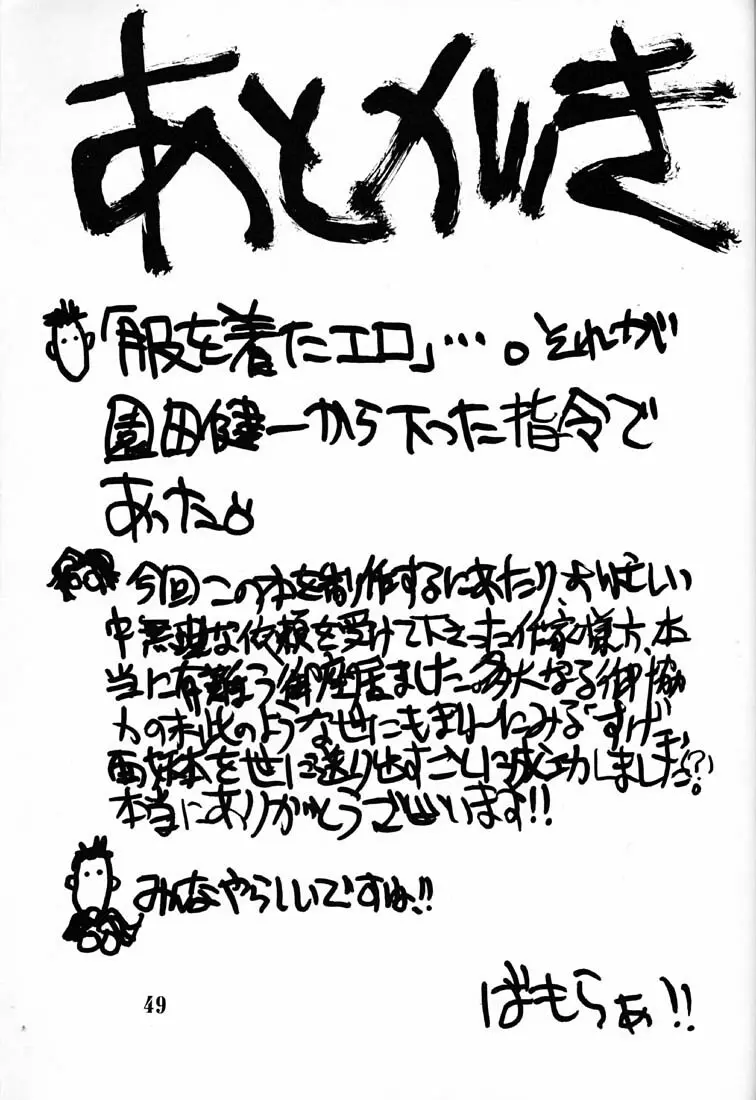 あとがき
「服を着たエロ」…。それが
園田健一から下った指令で
あった。
今回この本を制作するにあたり、お忙しい
中無理な依頼を受けて下さった作家様方、本
当に有難う御座居ました。多大なる御協
力の利此のような世にもまれにみる「すげー
面妖本を世に送り出すことに成功しました?」
本当にありがとうございます!!
みんなやらしいですね!!
ばもらぁ!!
49